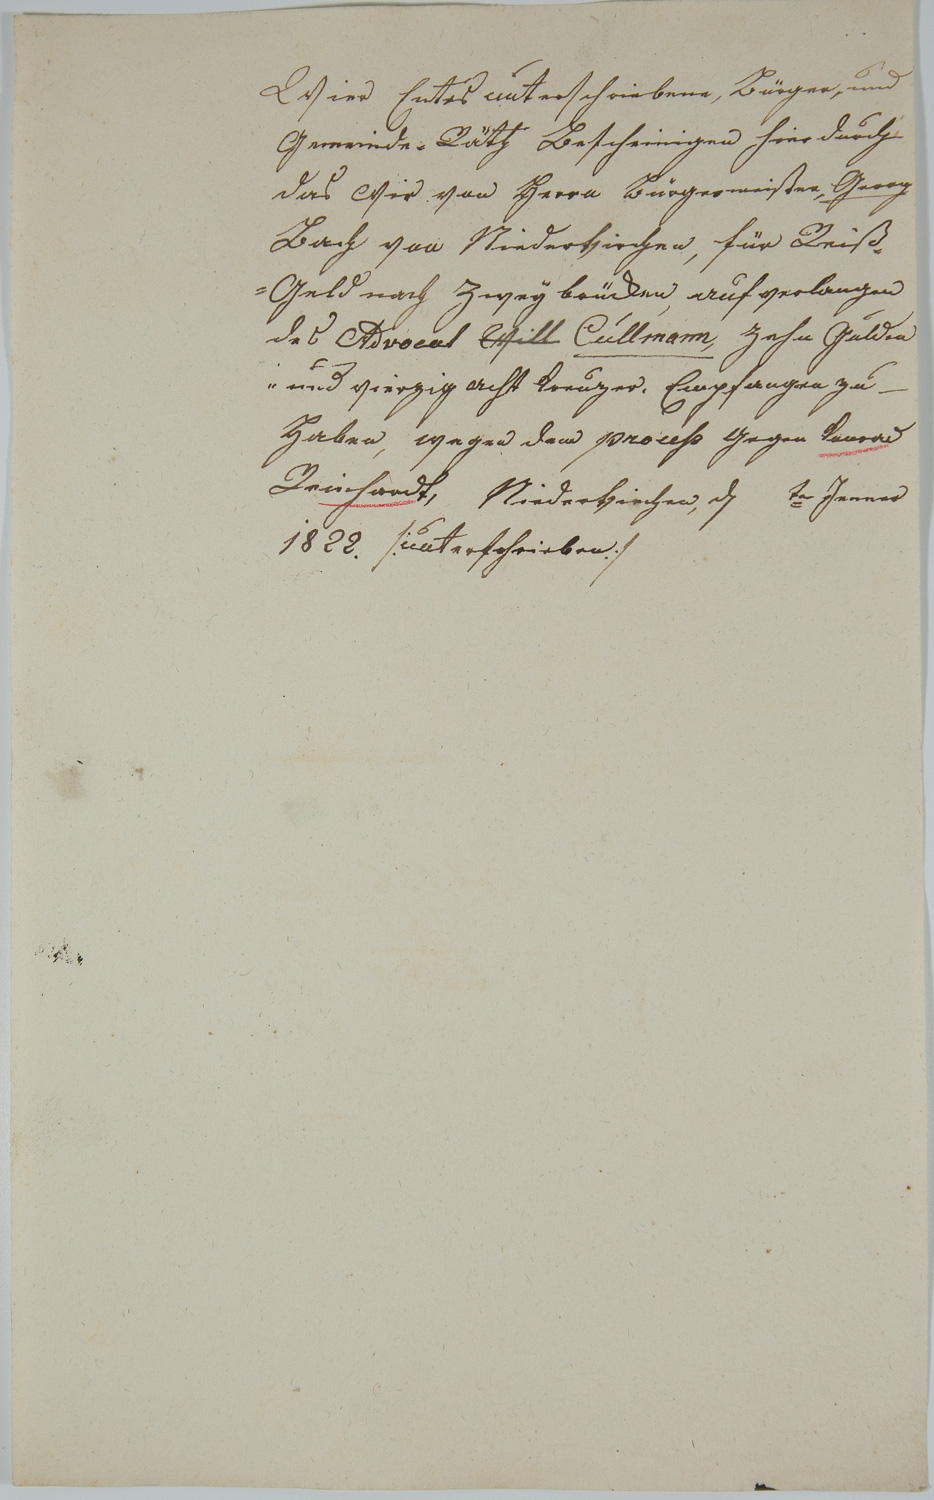 Wier Entes unterschriebene, Bürger, und
Gemeinde-Räth Bescheinigen hierdurch
das Wir von Herrn Bürgermeister, Georg
Bach von Niederkirchen, für Reiß-
=Geld nach Zweybrücken, auf verlangen
des Advocat Will Cullmann, zehn Gulden
" und vierzig acht Kreuzer. Empfangen zu —
Haben, wegen dem process gegen Konrad
Reinhardt, Niederkirchen, d tn Jenner
1822. /:unterschrieben:/